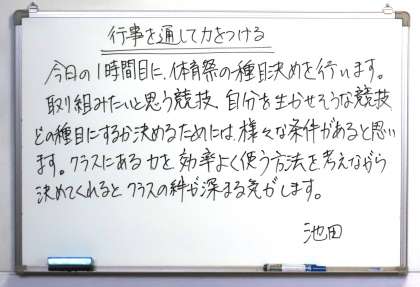 行事を通して力をつける
今日の1時間目に、体育祭の種目決めを行います。
取り組みたいと思う競技、自分を生かせそうな競技、
どの種目にするか決めるためには、様々な条件があると思い
ます。クラスにある力を効率よく使う方法を考えながら
決めてくれるとクラスの絆が深まる気がします。
池田